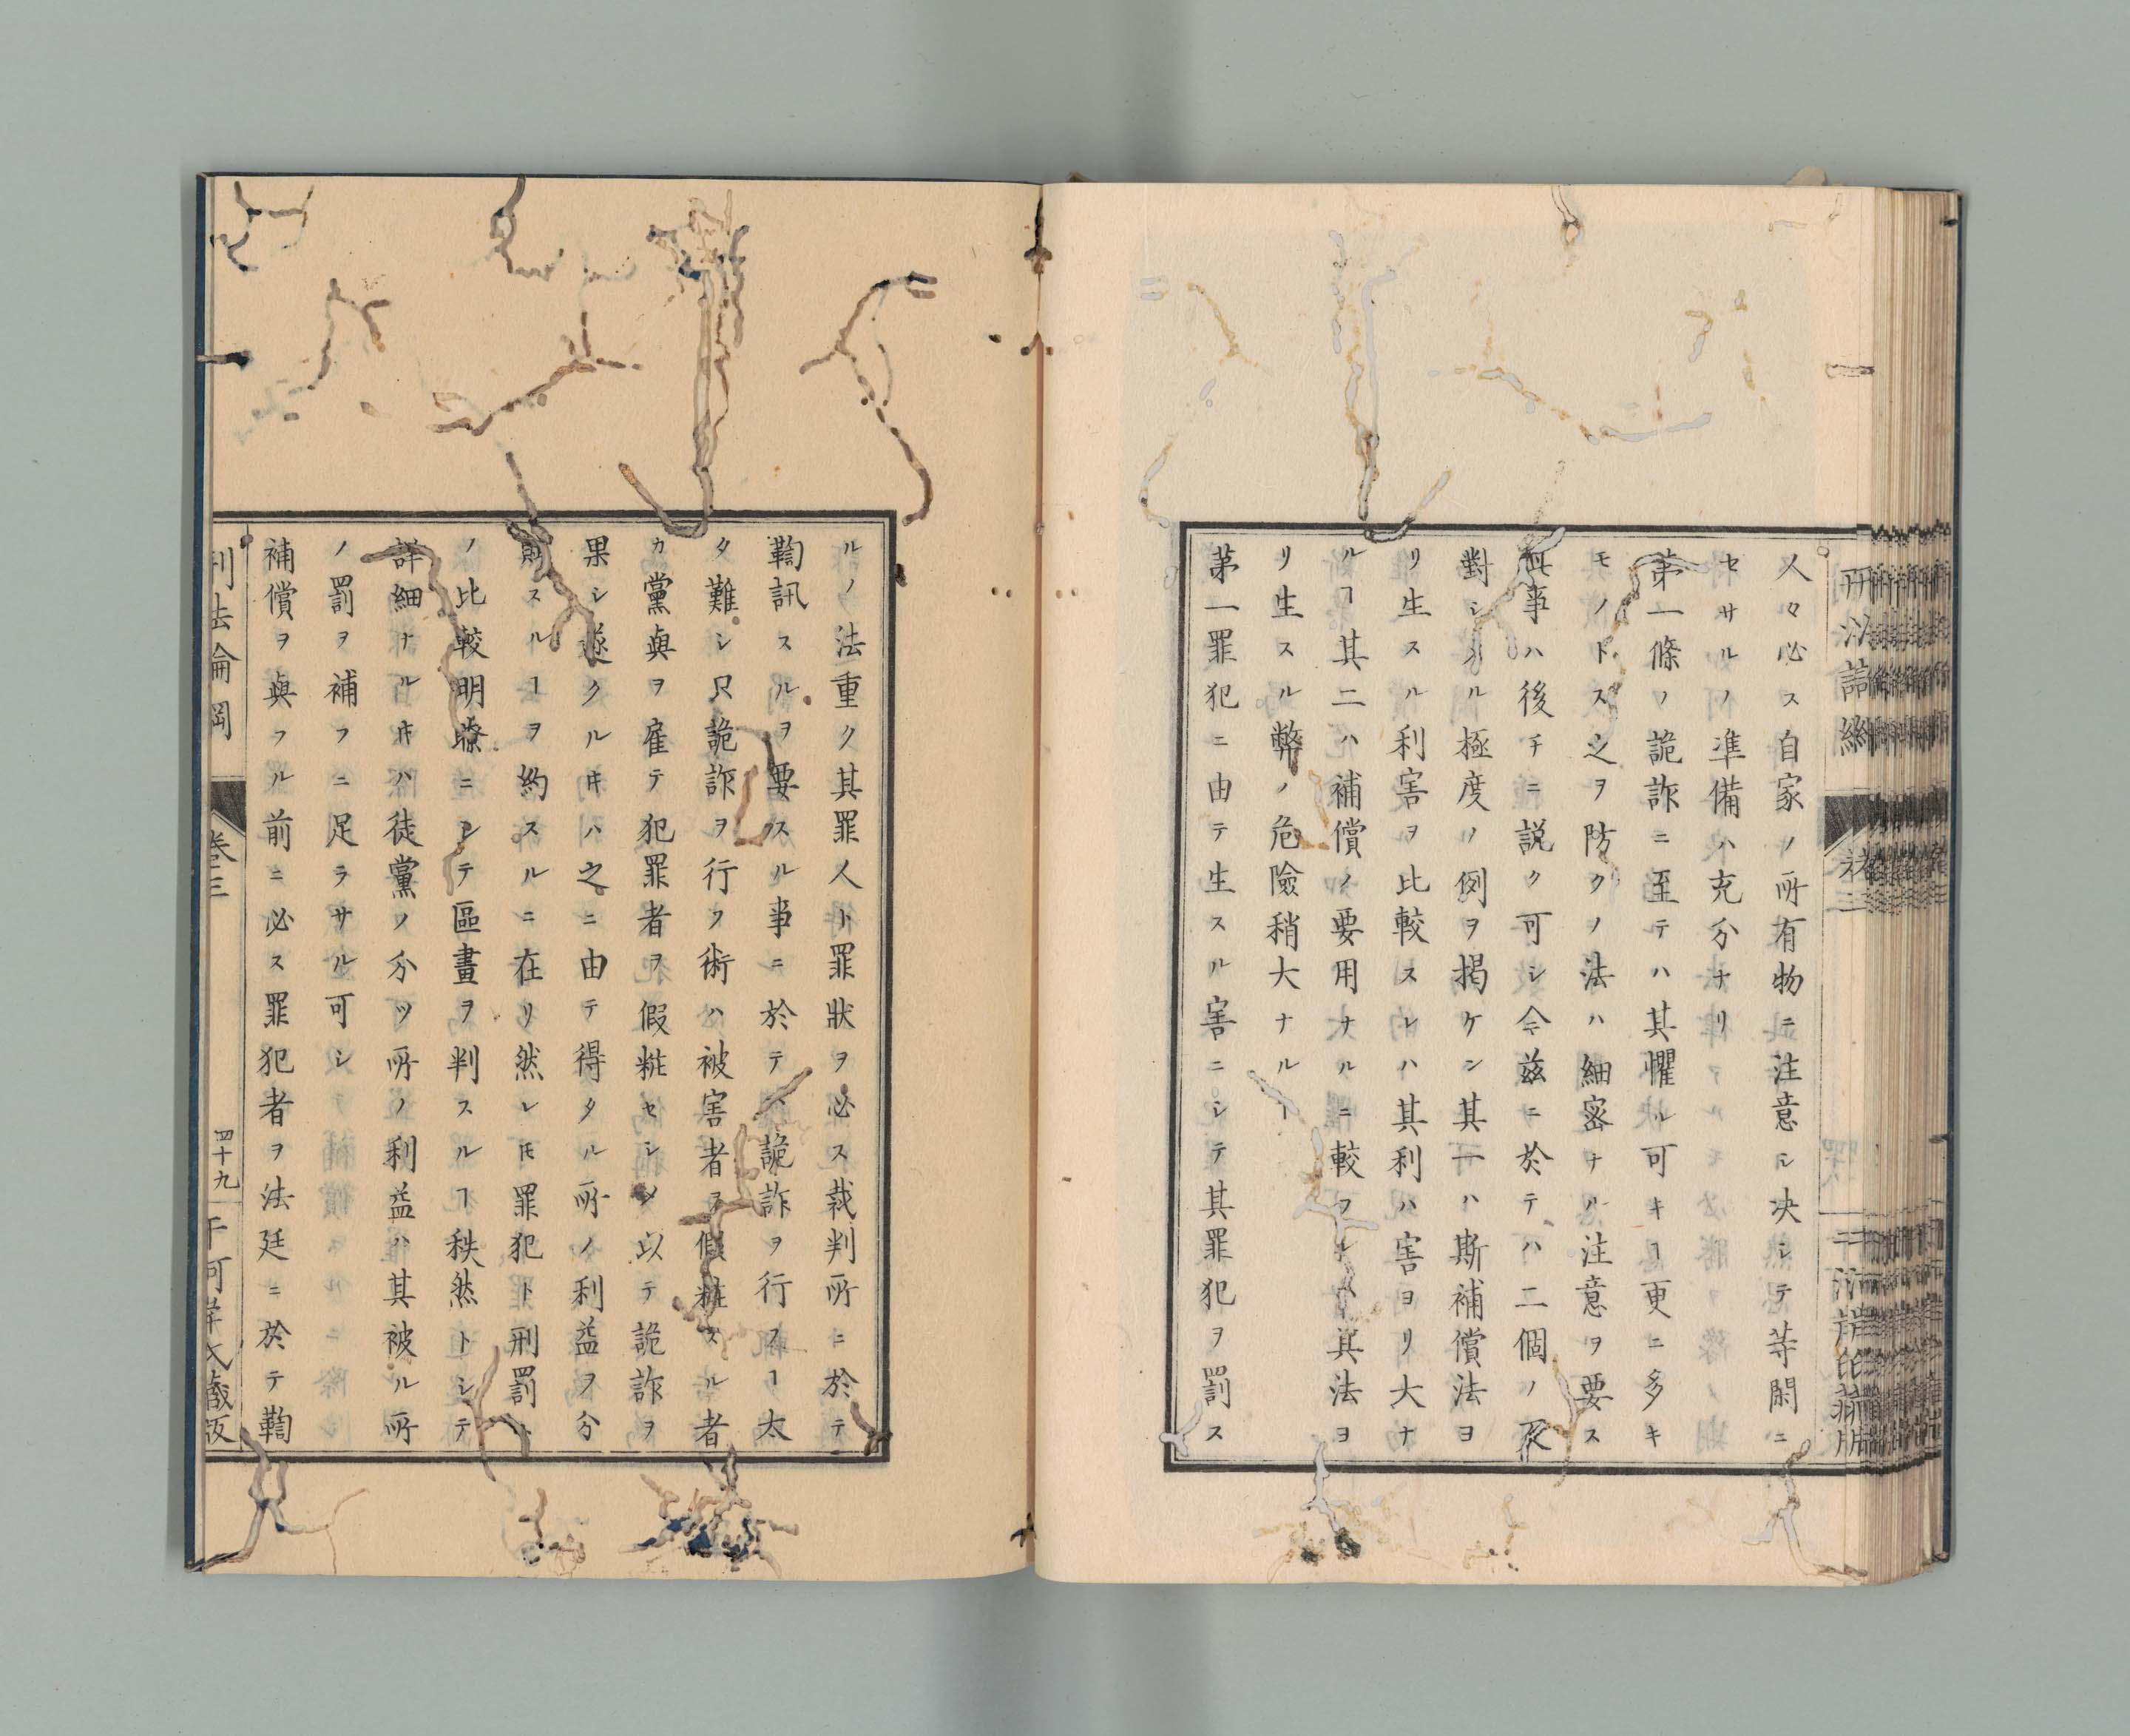 人々必ス自家ノ所有物ニ注意シ决シテ等閑ニ
セサルノ凖備ハ充分ナリ
第一條ノ詭詐ニ至テハ其懼ル可キヿ更ニ多キ
モノトス之ヲ防クノ法ハ細密ナル注意ヲ要ス
此事ハ後チニ説ク可シ今茲ニ於テハ二個ノ反
對シタル極度ノ例ヲ掲ケン其一ハ斯補償法ヨ
リ生スル利害ヲ比較スレハ其利ハ害ヨリ大ナ
ルヿ其二ハ補償ノ要用ナルニ較フレハ其法ヨ
リ生スル弊ノ危險稍大ナルヿ
第一罪犯ニ由テ生スル害ニシテ其罪犯ヲ罰ス
ルノ法重ク其罪人ト罪狀ヲ必ス裁判所ニ於テ
鞫訊スルヲ要スル事ニ於テハ詭詐ヲ行フヿ太
タ難シ只詭詐ヲ行フ術ハ被害者ヲ假粧スル者
カ黨與ヲ雇テ犯罪者ヲ假粧セシメ以テ詭詐ヲ
果シ遂クル㕝ハ之ニ由テ得タル所ノ利益ヲ分
割スルヿヲ約スルニ在リ然レ𪜈罪犯ト刑罰ト
ノ比較明瞭ニシテ區畫ヲ判スルヿ秩然トシテ
詳細ナル㕝ハ徒黨ノ分ツ所ノ利益ハ其被ル所
ノ罰ヲ補フニ足ラサル可シ
補償ヲ與フル前ニ必ス罪犯者ヲ法廷ニ於テ鞫
刑法論綱
卷三
四十九